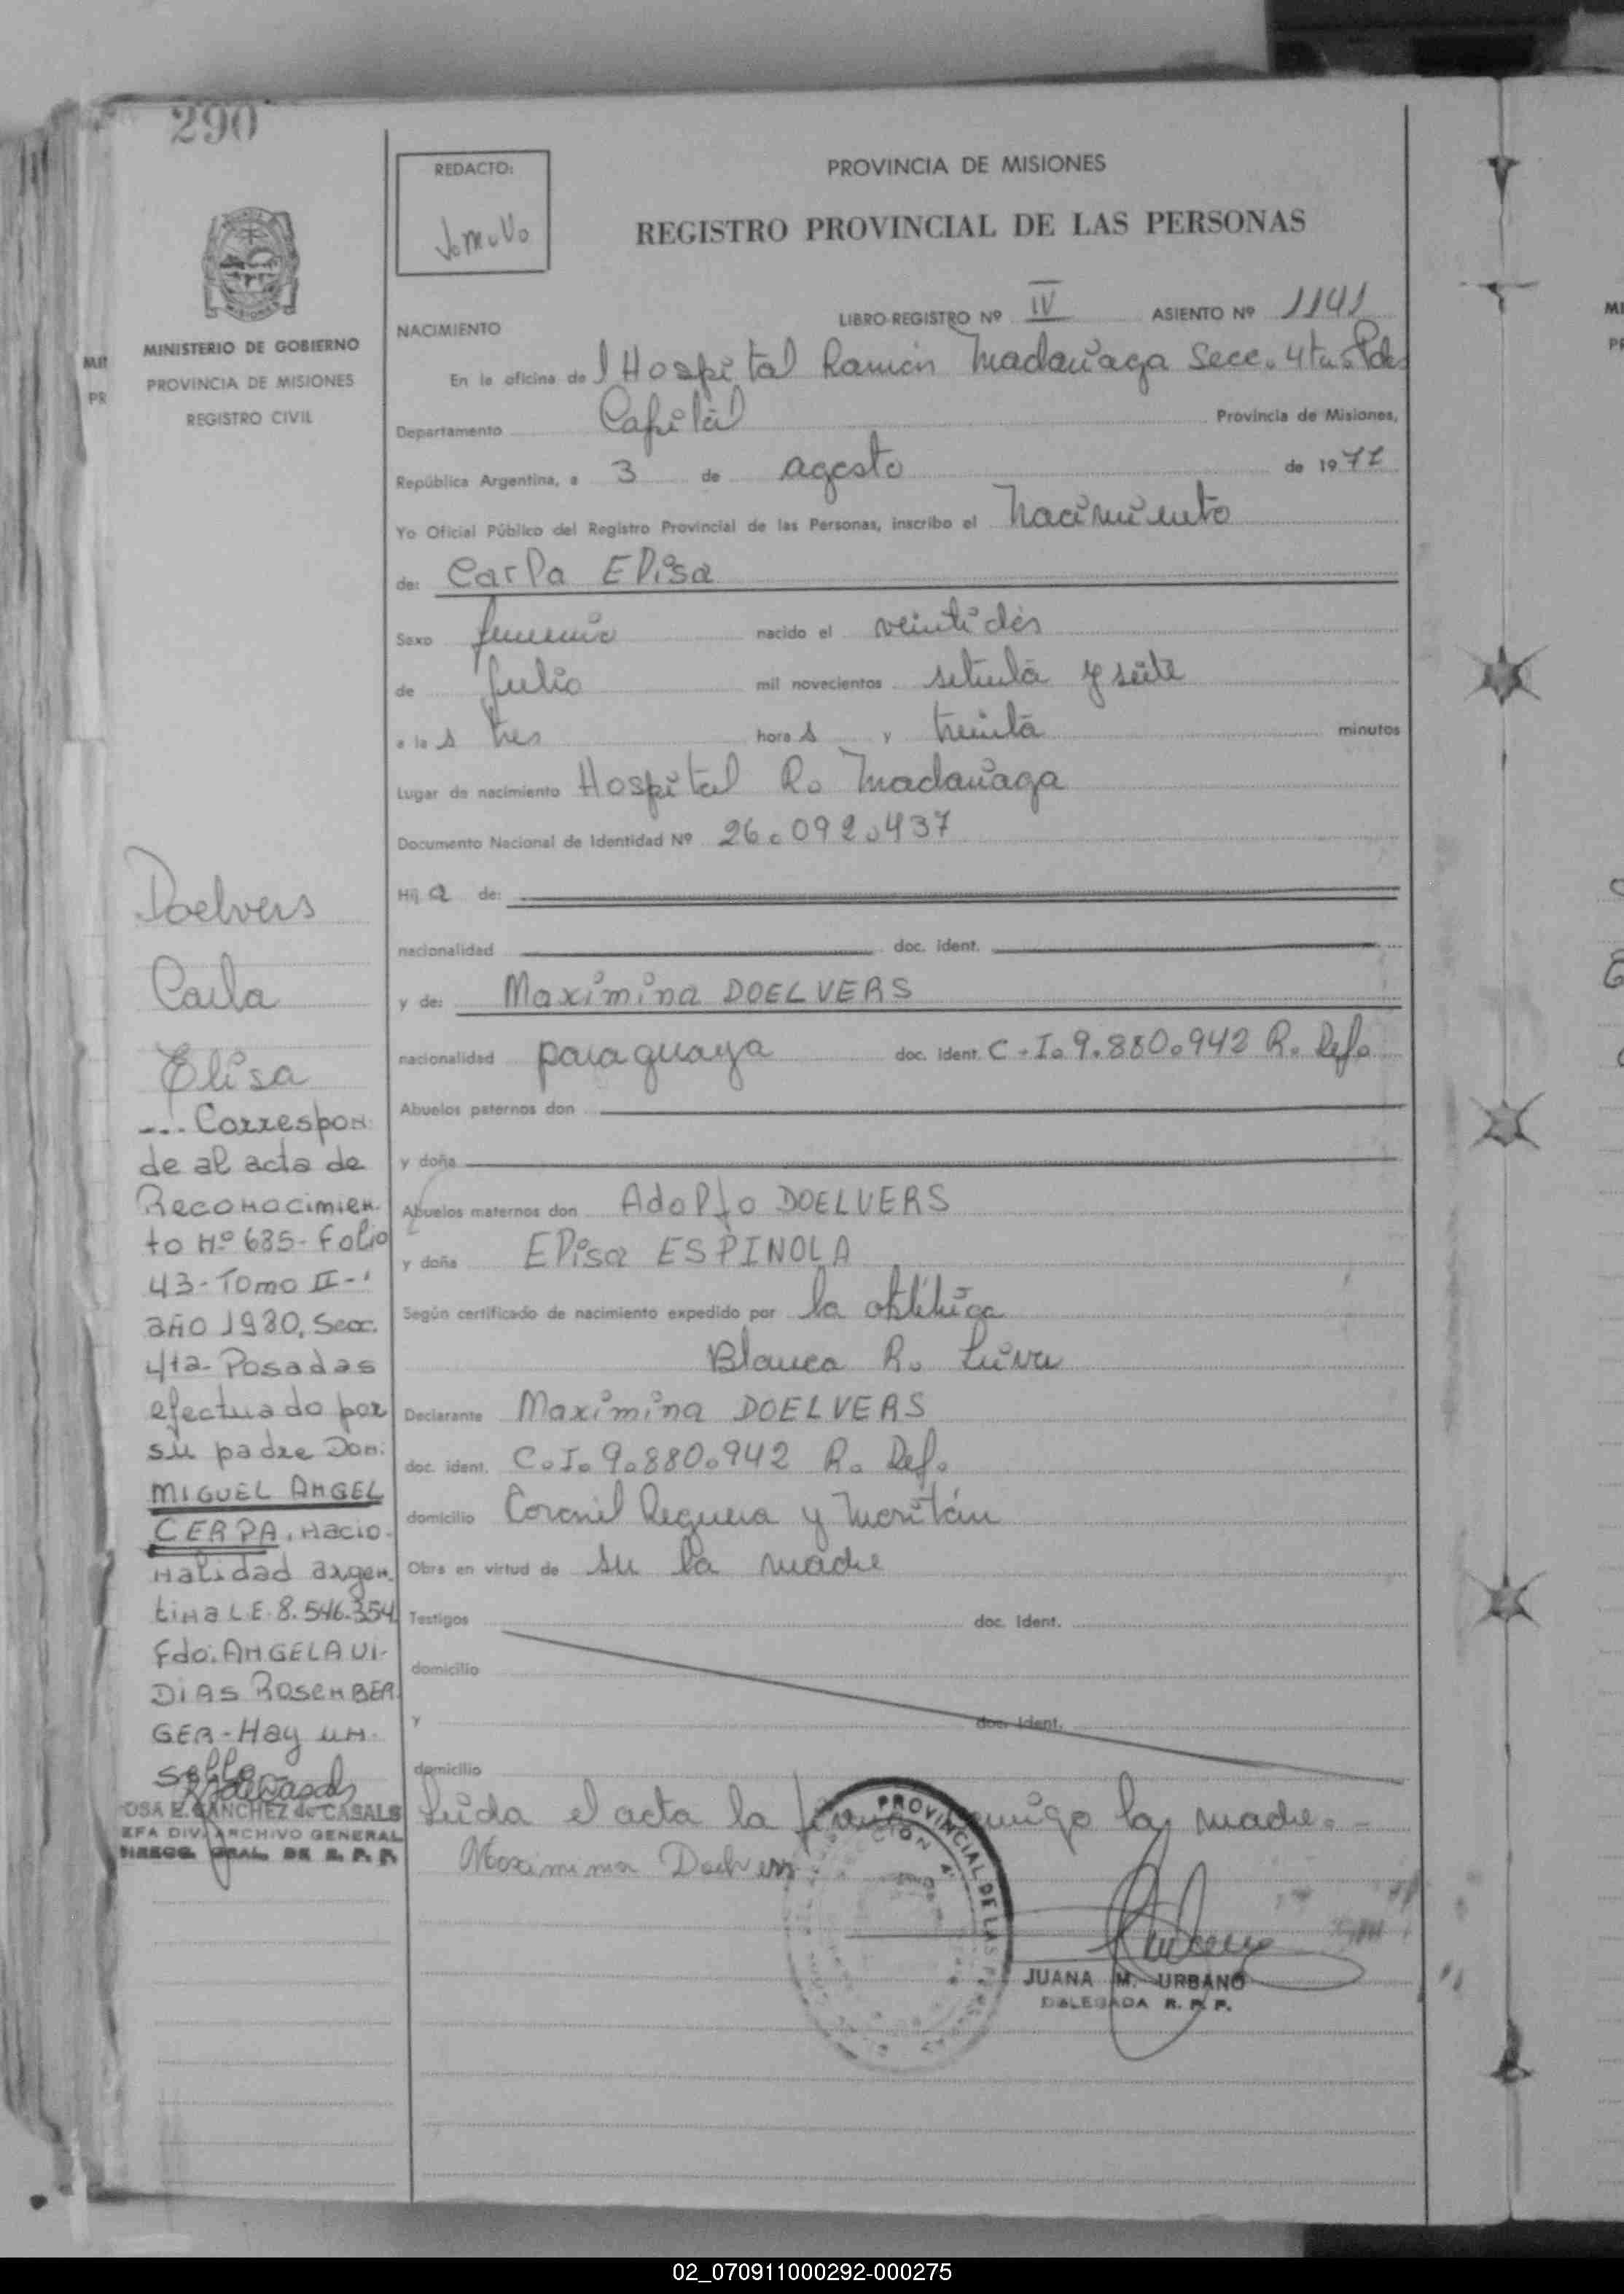 290
MINISTERIO DE GOBIERNO
PROVINCIA DE MISIONES
REGISTRO CIVIL
REDACTO:
PROVINCIA DE MISIONES
REGISTRO PROVINCIAL DE LAS PERSONAS
NACIMIENTO
LIBRO-REGISTRO Nº IV ASIENTO Nº 1141
En la oficina del Hospital Ramón Madariaga Secc. 4ta. Pdas
Departamento Capital Provincia de Misiones,
República Argentina, a 3 de agosto de 1977
Yo Oficial Público del Registro Provincial de las Personas, inscribo el Nacimiento
de: Carla Elisa
Sexo femenino nacido el veintidós
de julio mil novecientos setenta y siete
a las tres horas y treinta minutos
Lugar de nacimiento Hospital R. Madariaga
Documento Nacional de Identidad Nº 26.092.437
Hija de:
nacionalidad doc. ident.
y de: Maximina DOELVERS
nacionalidad paraguaya doc. ident. C.I. 9.880.942 R. Def.
Abuelos paternos don
y doña
Abuelos maternos don Adolfo DOELVERS
y doña Elisa ESPINOLA
Según certificado de nacimiento expedido por la obstétrica
Blanca R. Leiva
Declarante Maximina DOELVERS
doc. ident. C.I. 9.880.942 R. Def.
domicilio Coronel Reguera y
Obra en virtud de su la madre
Testigos doc. Ident.
domicilio
y doc. Ident.
domicilio
Leida el acta la firma conmigo la madre.-
Maximina Doelvers
PROVINCIAL DE LAS
JUANA M. URBANO
DELEGADA R. P. P.
Doelvers
Carla
Elisa
--.. Correspon
de al acta de
Reconocimien
to Nº 685- Folio
43- Tomo II-
año 1980, Secc.
4ta- Posadas
efectuado por
su padre Don:
MIGUEL ANGEL
CERPA, nacio-
nalidad argen-
tina L.E. 8.546.354
Fdo: ANGELA VI-
DIAS ROSENBER
GER- Hay un
sello
OSA E. SANCHEZ de CASALS
EFA DIV. ARCHIVO GENERAL
DIRECC. GRAL. DE R. P. P.
02_070911000292-000275